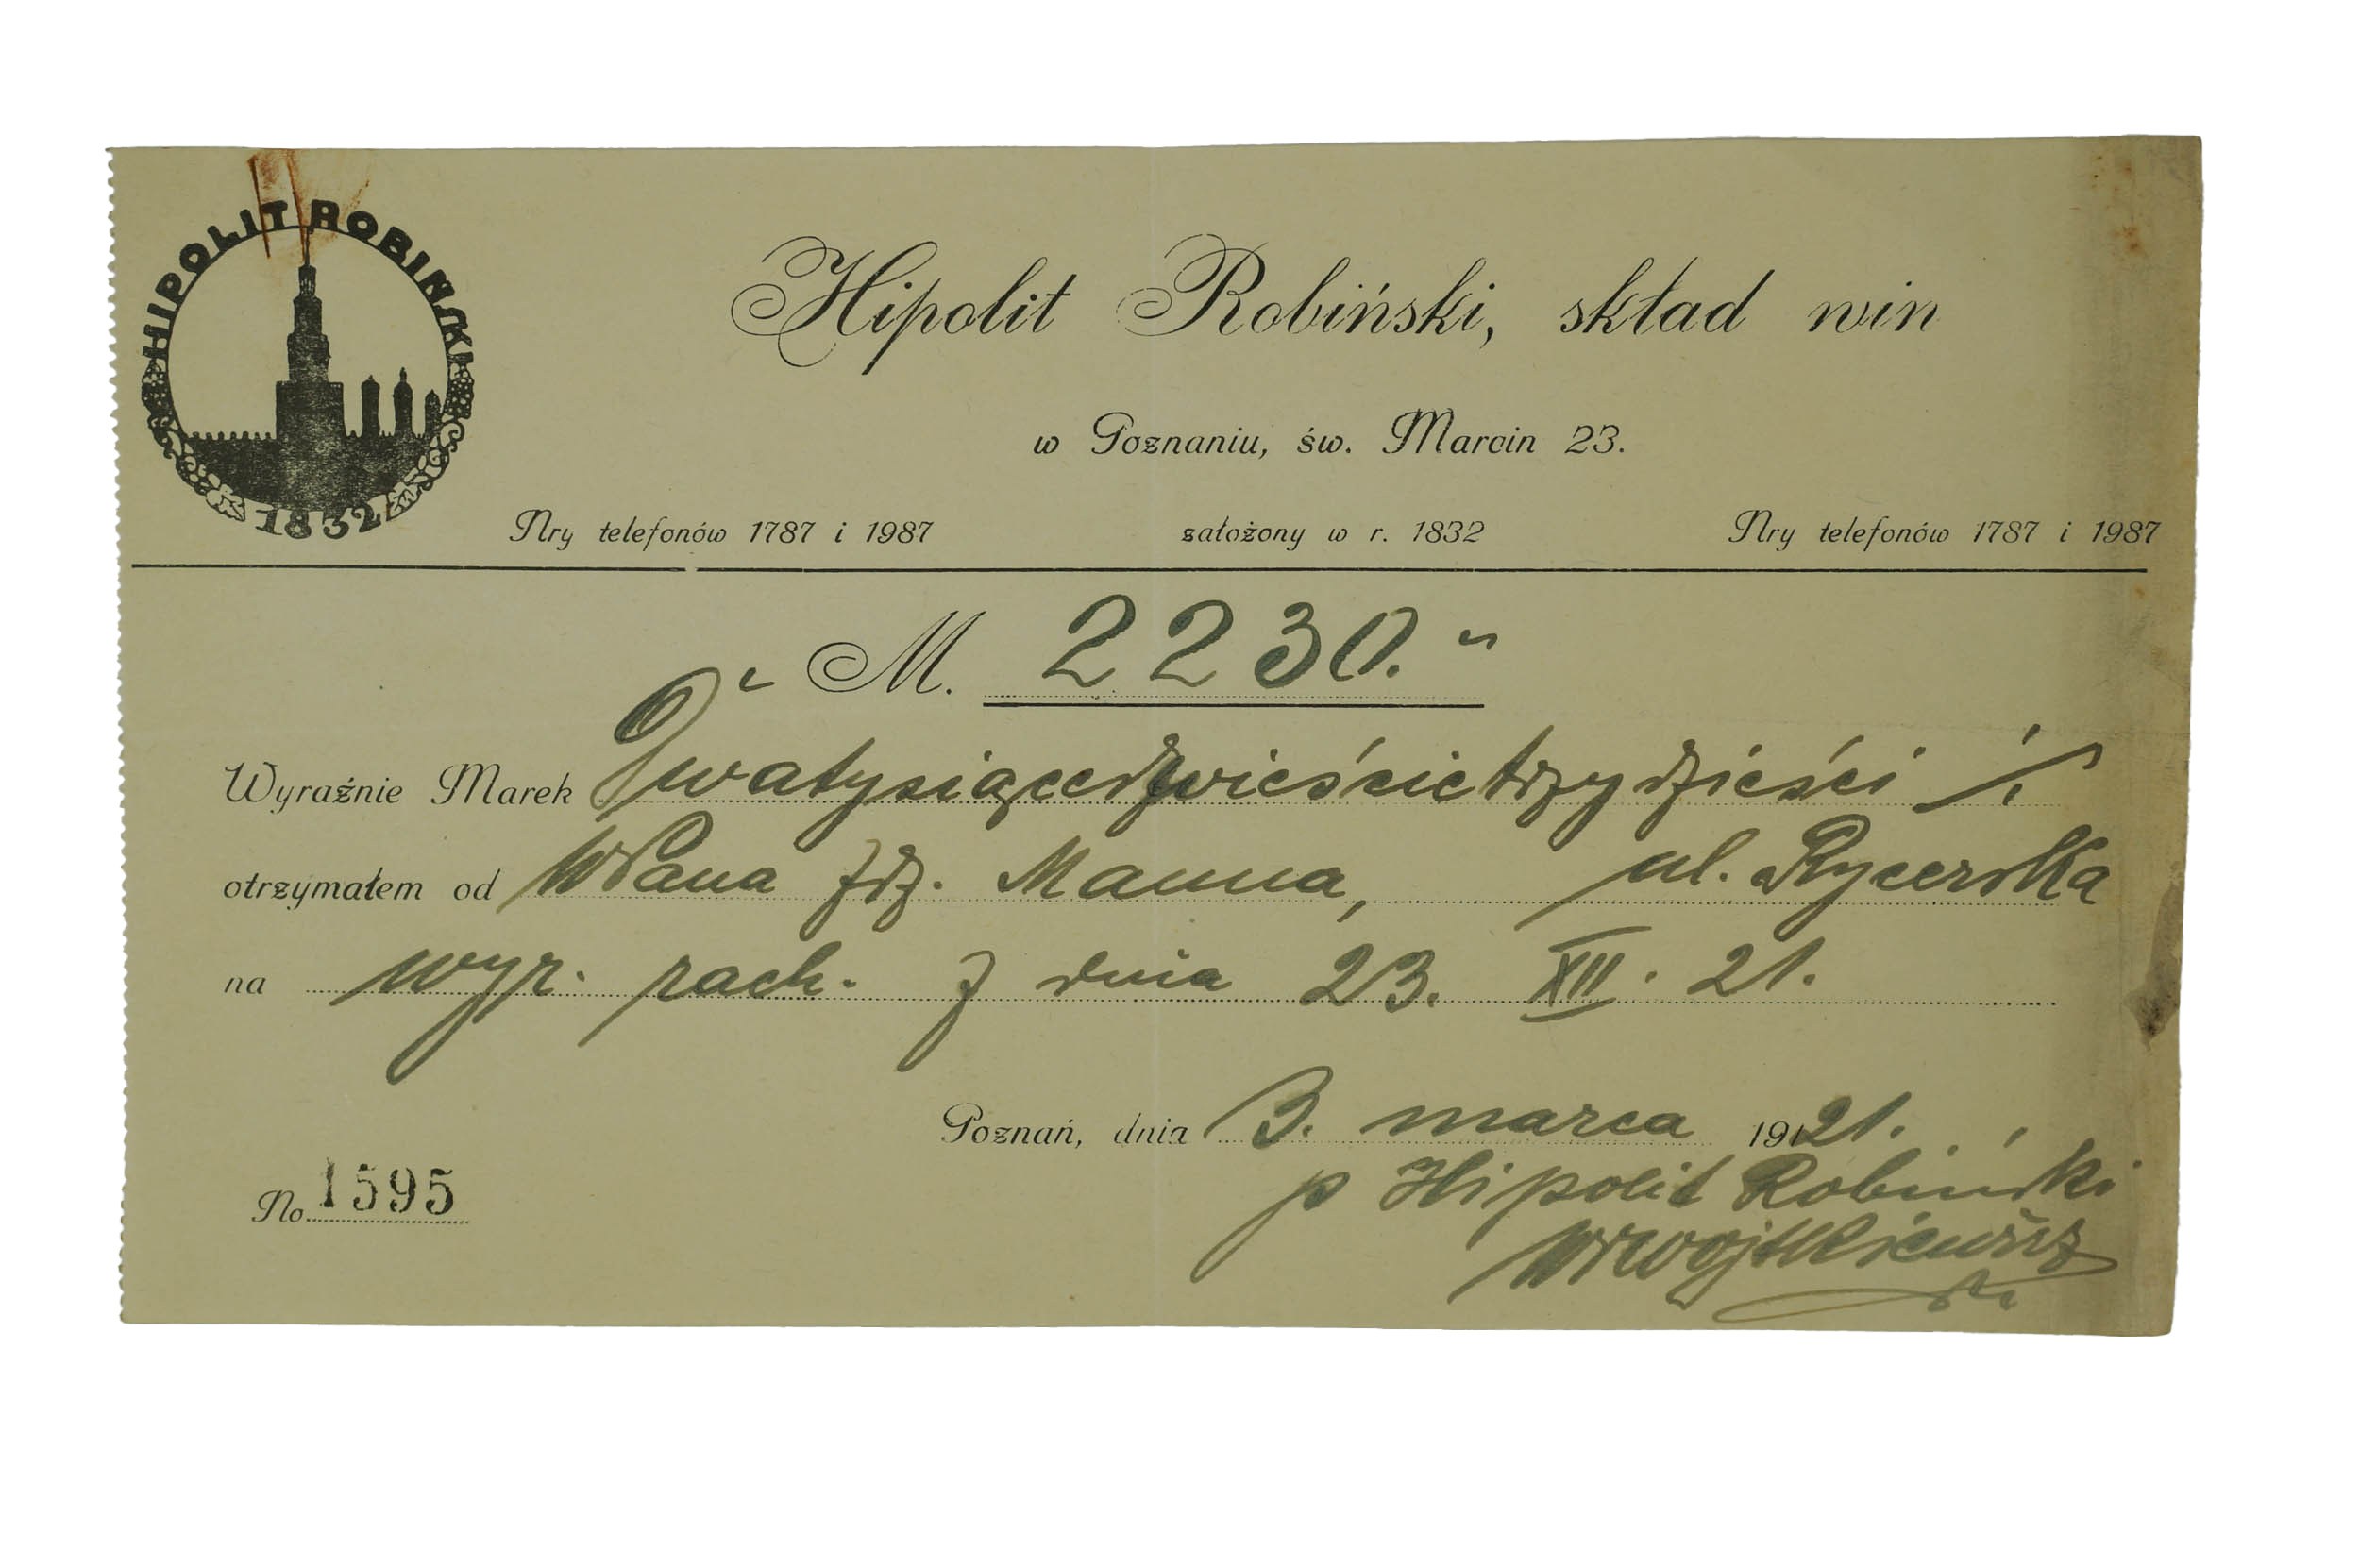 HIPOLIT ROBIŃSKI
1832
Hipolit Robiński, skład win
w Poznaniu, św. Marcin 23.
Nry telefonów 1787 i 1987 założony w r. 1832 Nry telefonów 1787 i 1987
M. 2230.
Wyraźnie Marek Dwatysiącedwieścietrzydzieści
otrzymałem od WPana Zdz. Manna, ul. Rycerska
na wyr. rach. z dnia 23. XII. 21.
Poznań, dnia 3. marca 1921.
No. 1595
p Hipolit Robiński